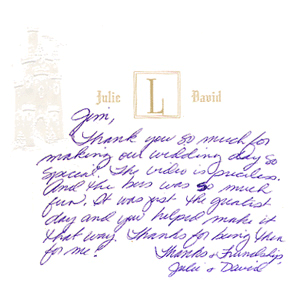 Julie L David
Jim,
Thank you so much for
making our wedding day so
special. The video is priceless.
And the bus was so much
fun. It was just the greatest
day and you helped make it
that way. Thanks for being there
for me!
Thanks & Friendship,
Julie & David